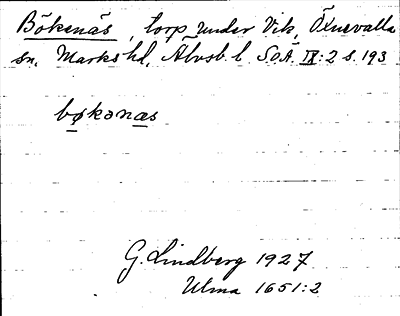 Bökenäs, torp under Vik, Öxnevalla
sn. Marks hd, Älvsb. l. SOÄ IX:2 s. 193
bøkənas
G. Lindberg 1927
Ulma 1651:2